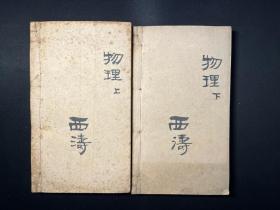 物理 上
西涛
物理 下
西涛